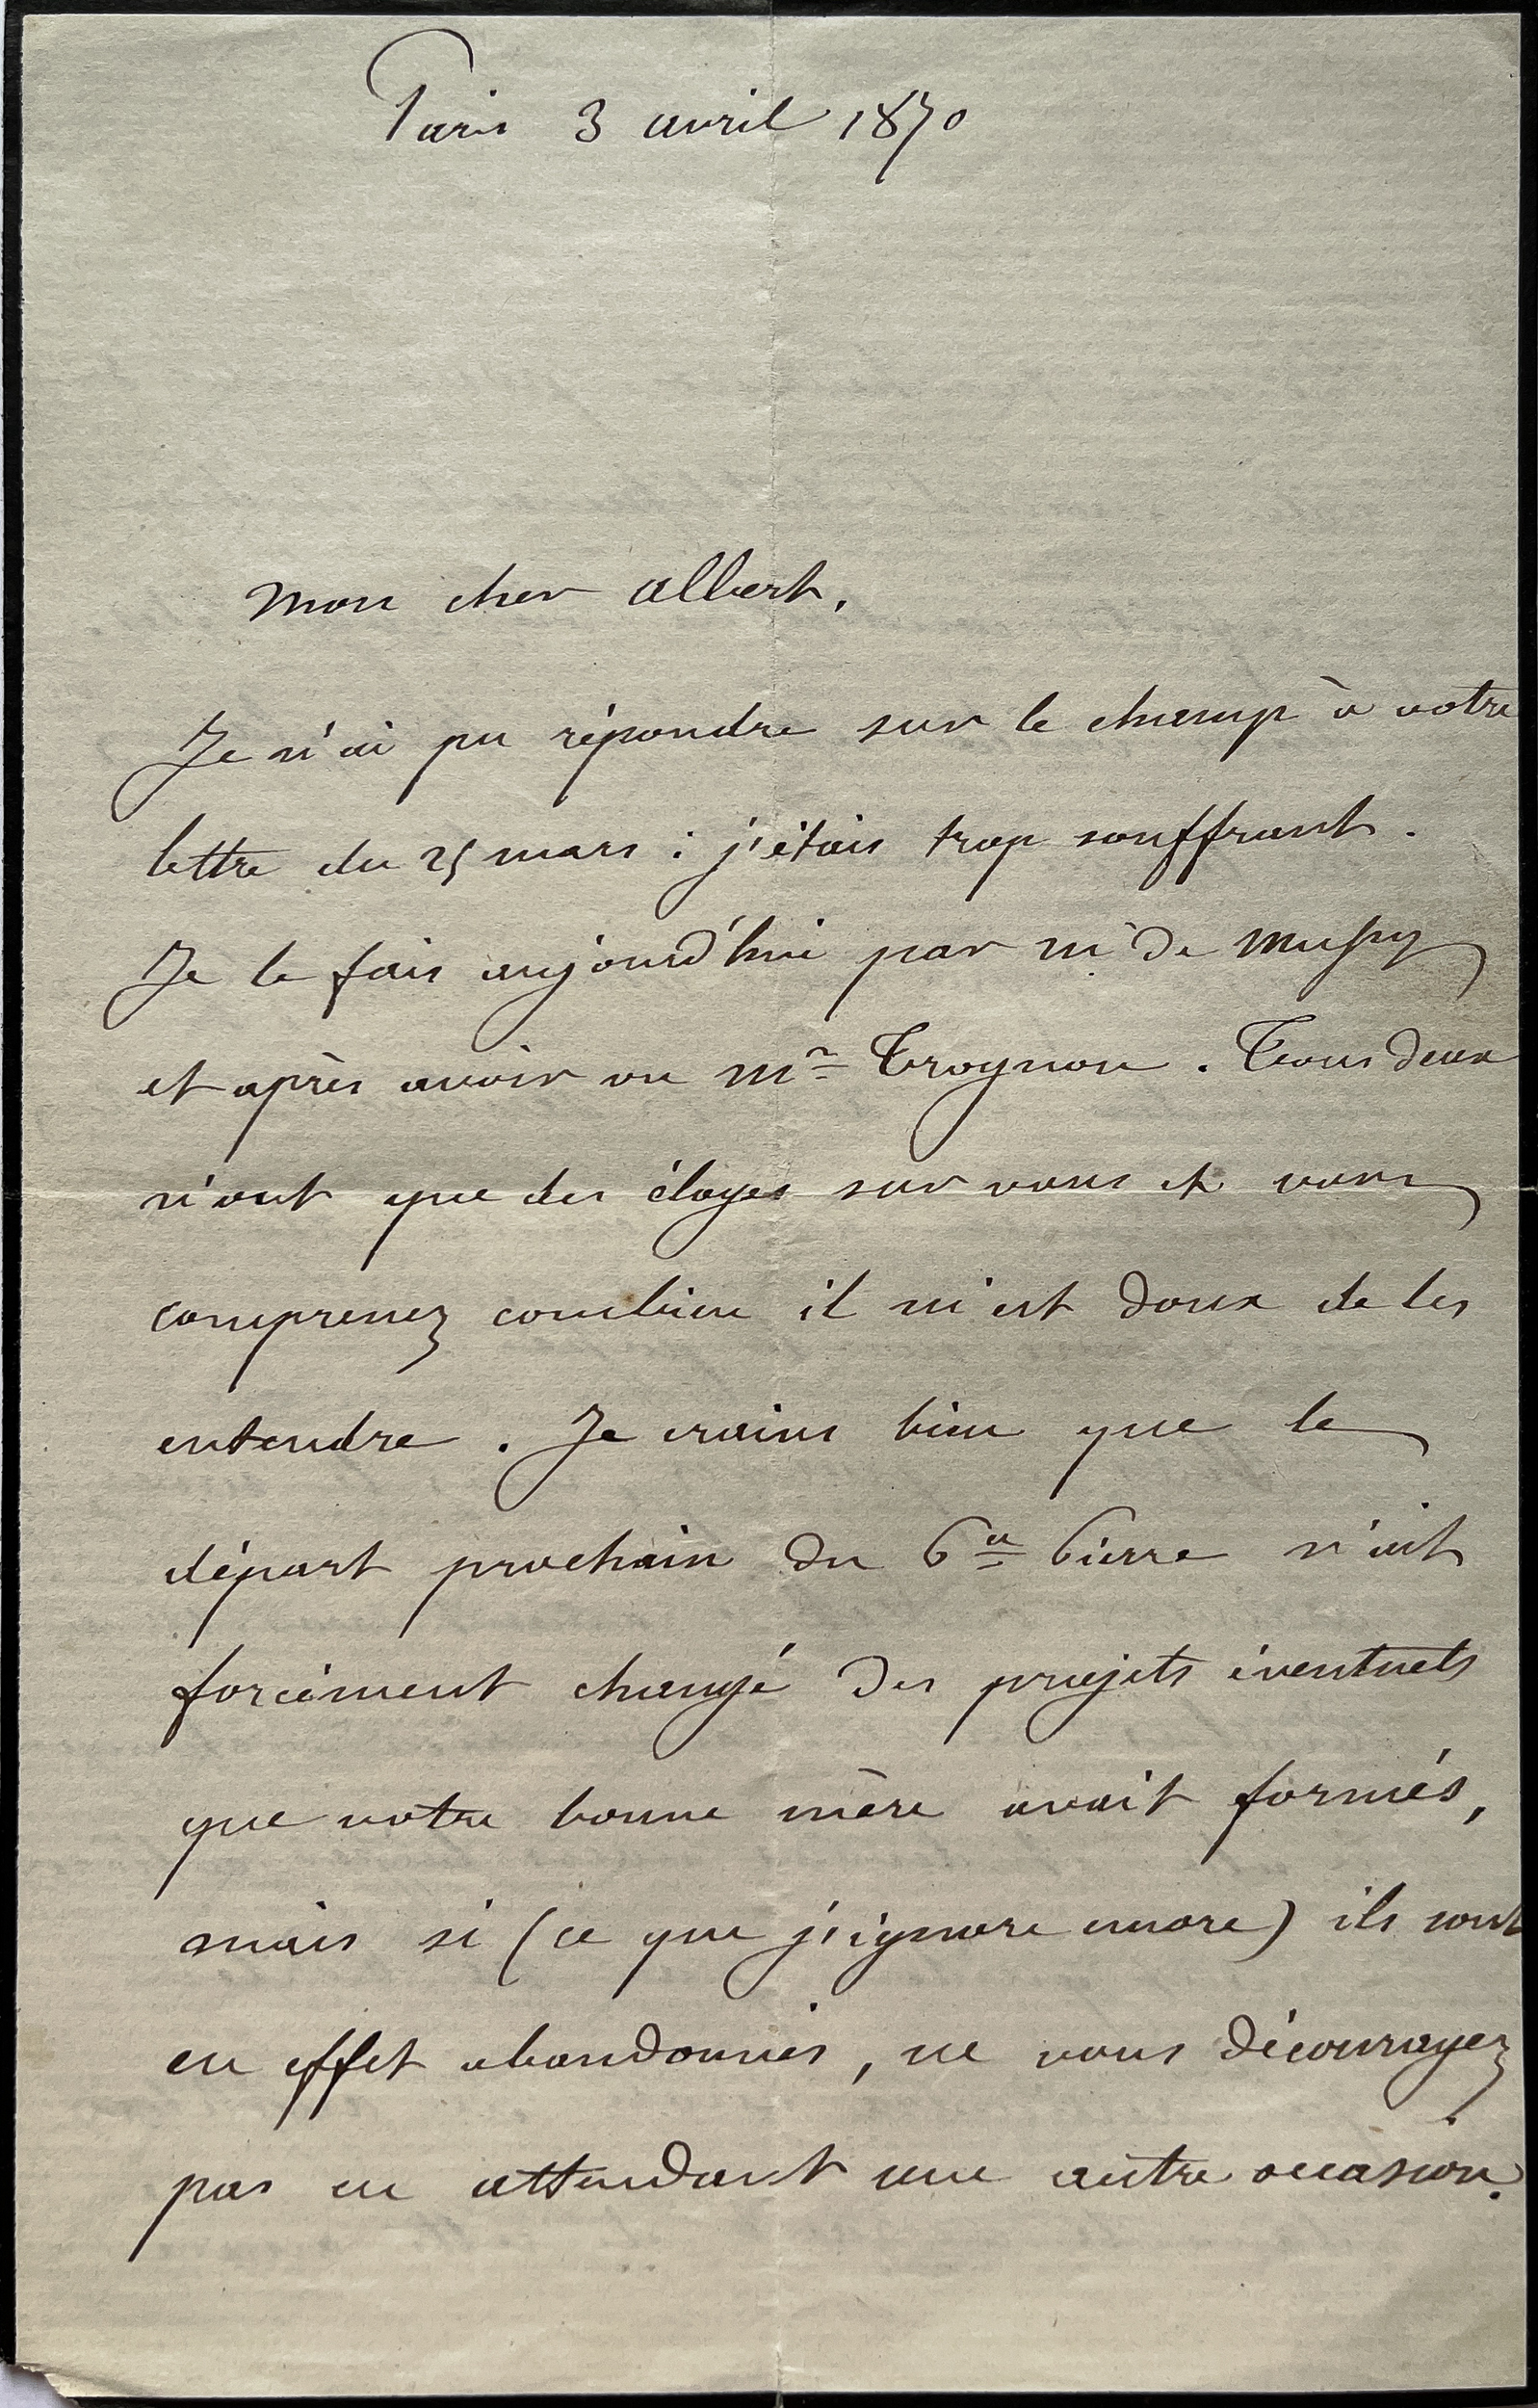 Paris 3 avril 1870
Mon cher Albert,
Je n'ai pu répondre sur le champ à votre
lettre du 25 mars : j'étais trop souffrant.
Je le fais aujourd'hui par M. de Mussy
et après avoir vu Mr Trognon. Tous deux
n'ont que des éloges sur vous et vous
comprenez combien il m'est doux de les
entendre. Je crains bien que le
départ prochain du Pce Pierre n'ait
forcément changé des projets éventuels
que votre bonne mère avait formés,
mais si (ce que j'ignore encore) ils sont
en effet abandonnés, ne vous découragez
pas en attendant une autre occasion.